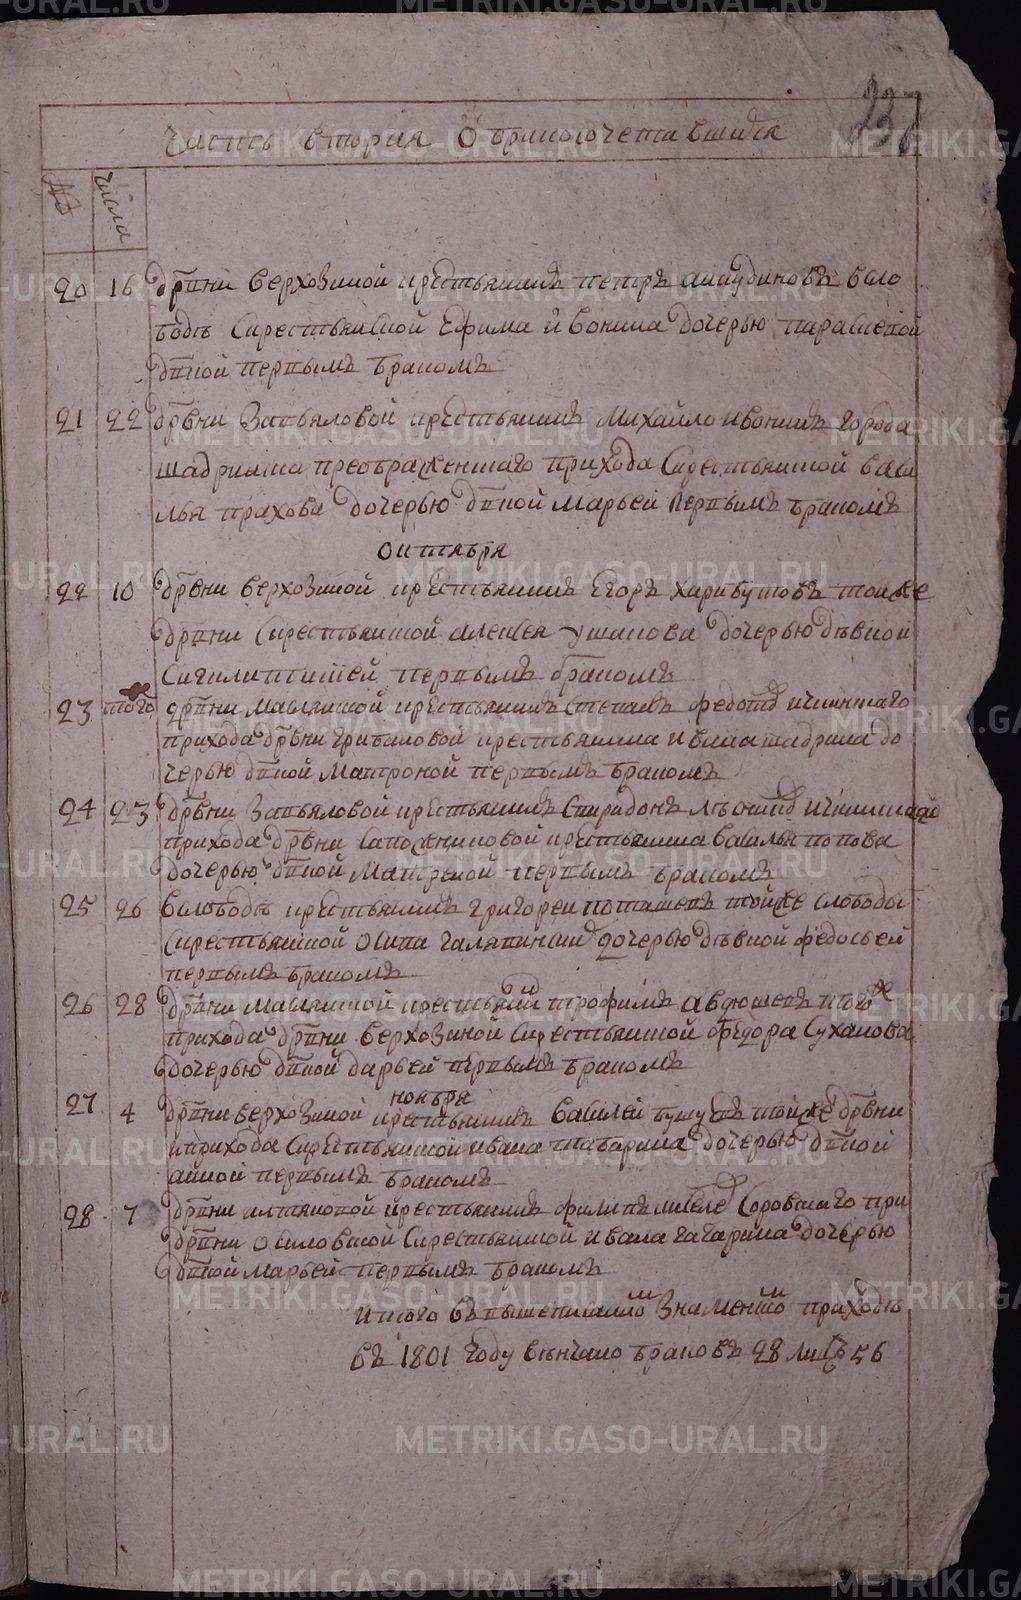 237
Часть вторая О бракосочетавшихся
№
числа
20 16 дрвни верхозиной крестьянинъ петръ анкудиновъ вело
бодѣ Скрестьянской Ефима Ивонина дочерью параскевой
двкой первымъ бракомъ
21 22 дрвни Завьяловой крестьянинъ Михайло Ивонинъ города
шадринска преображенскаго прихода Скрестьянской васи
лья прахова дочерью двкой марьей первымъ бракомъ
октября
22 10 дрвни верхозиной крестьянинъ Егоръ Харибутовъ тоиже
дрвни Скрестьянской алексея ушакова дочерью дѣвкой
первымъ бракомъ
23 того же дрвни маслянской крестьянинъ Степанъ федотов
прихода дрвни грибановой крестьянина Ивана шадрина до
черью двкой Матроной первымъ бракомъ
24 23 дрвни Завьяловой крестьянинъ Спиридонъ
прихода дрвни Сапожниковой крестьянина василья попова
дочерью двкой Матреной первымъ бракомъ
25 26 вслободѣ крестьянинъ григореи поташевъ тоиже слободы
Скрестьянской Осипа дочерью дѣвкой федосьей
первымъ бракомъ
26 28 дрвни маслянской крестьянин трофимъ авдюшевъ тогоже
прихода дрвни верхозиной Скрестьянской федора Суханова
дочерью двкой дарьей первымъ бракомъ
ноября
27 4 дрвни верхозиной крестьянинъ василей тойже дрвни
и прихода Скрестьянской ивана табарина дочерью двкой
анной первымъ бракомъ
28 7 дрвни крестьянинъ филипъ Соровскаго при
дрвни осиповской Скрестьянской ивана гагарина дочерью
двкой марьей первымъ бракомъ
итого въ вышеписанномъ Знаменскомъ приходѣ
въ 1801 году вѣнчано браковъ 28 лицъ 56
METRIKI.GASO-URAL.RU